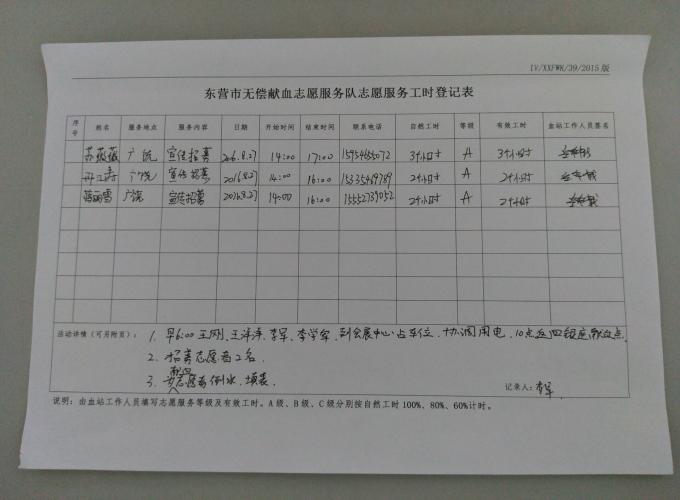 IV/XXFWH/39/2015版
东营市无偿献血志愿服务队志愿服务工时登记表
序号 姓名 服务地点 服务内容 日期 开始时间 结束时间 联系电话 自然工时 等级 有效工时 血站工作人员签名
苏薇薇 广饶 宣传招募 2016.8.27 14:00 17:00 3个小时 A 3个小时
广饶 宣传招募 2016.8.27 14:00 16:00 15335469789 2个小时 A 2个小时
蒋丽雪 广饶 宣传招募 2016.8.27 14:00 16:00 15552737052 2个小时 A 2个小时
活动详情（可另附页）： 1. 早6:00 王刚、王洋洋、李军、李学军、到会展中心占车位、协调用电，10点返回银座献血点
2. 招募志愿者2名.
3. 志愿者倒水、填表
记录人：李军
说明：由血站工作人员填写志愿服务等级及有效工时。A级、B级、C级分别按自然工时100%、80%、60%计时。